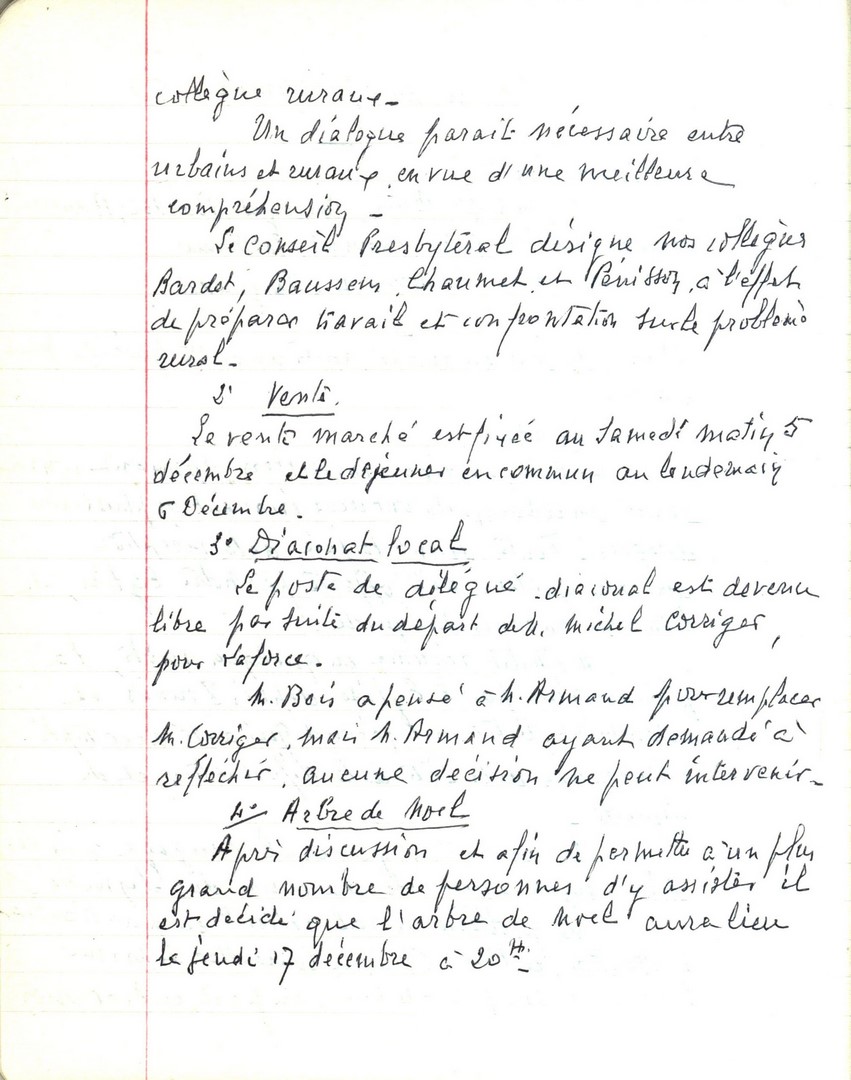 collègue ruraux -
Un dialogue parait nécessaire entre
urbains et ruraux, en vue d'une meilleure
compréhension -
Le Conseil Presbytéral désigne nos collègues
Bardet, Baussens, Chaumet, et Pénisson, à l'effet
de préparer travail et confrontation sur le problème
rural -
2° Vente.
La vente marché est fixée au Samedi matin 5
décembre et le déjeuner en commun au lendemain
6 Décembre.
3° Diaconat local
Le poste de délégué diaconal est devenu
libre par suite du départ de M. Michel Corriger,
pour
M. Bois a pensé à M. Armand pour remplacer
M. Corriger, mais M. Armand ayant demandé à
réfléchir, aucune décision ne peut intervenir -
4° Arbre de Noel
Après discussion et afin de permettre à un plus
grand nombre de personnes d'y assister il
est décidé que l'arbre de Noel aura lieu
le jeudi 17 décembre à 20 H.